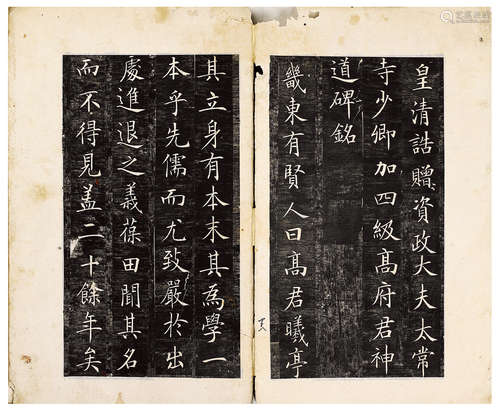 皇清誥贈資政大夫太常
寺少卿加四級髙府君神
道碑銘
畿東有賢人曰髙君曦亭
其立身有本末其為學一
本乎先儒而尤致嚴於出
處進退之義葆田聞其名
而不得見盖二十餘年矣